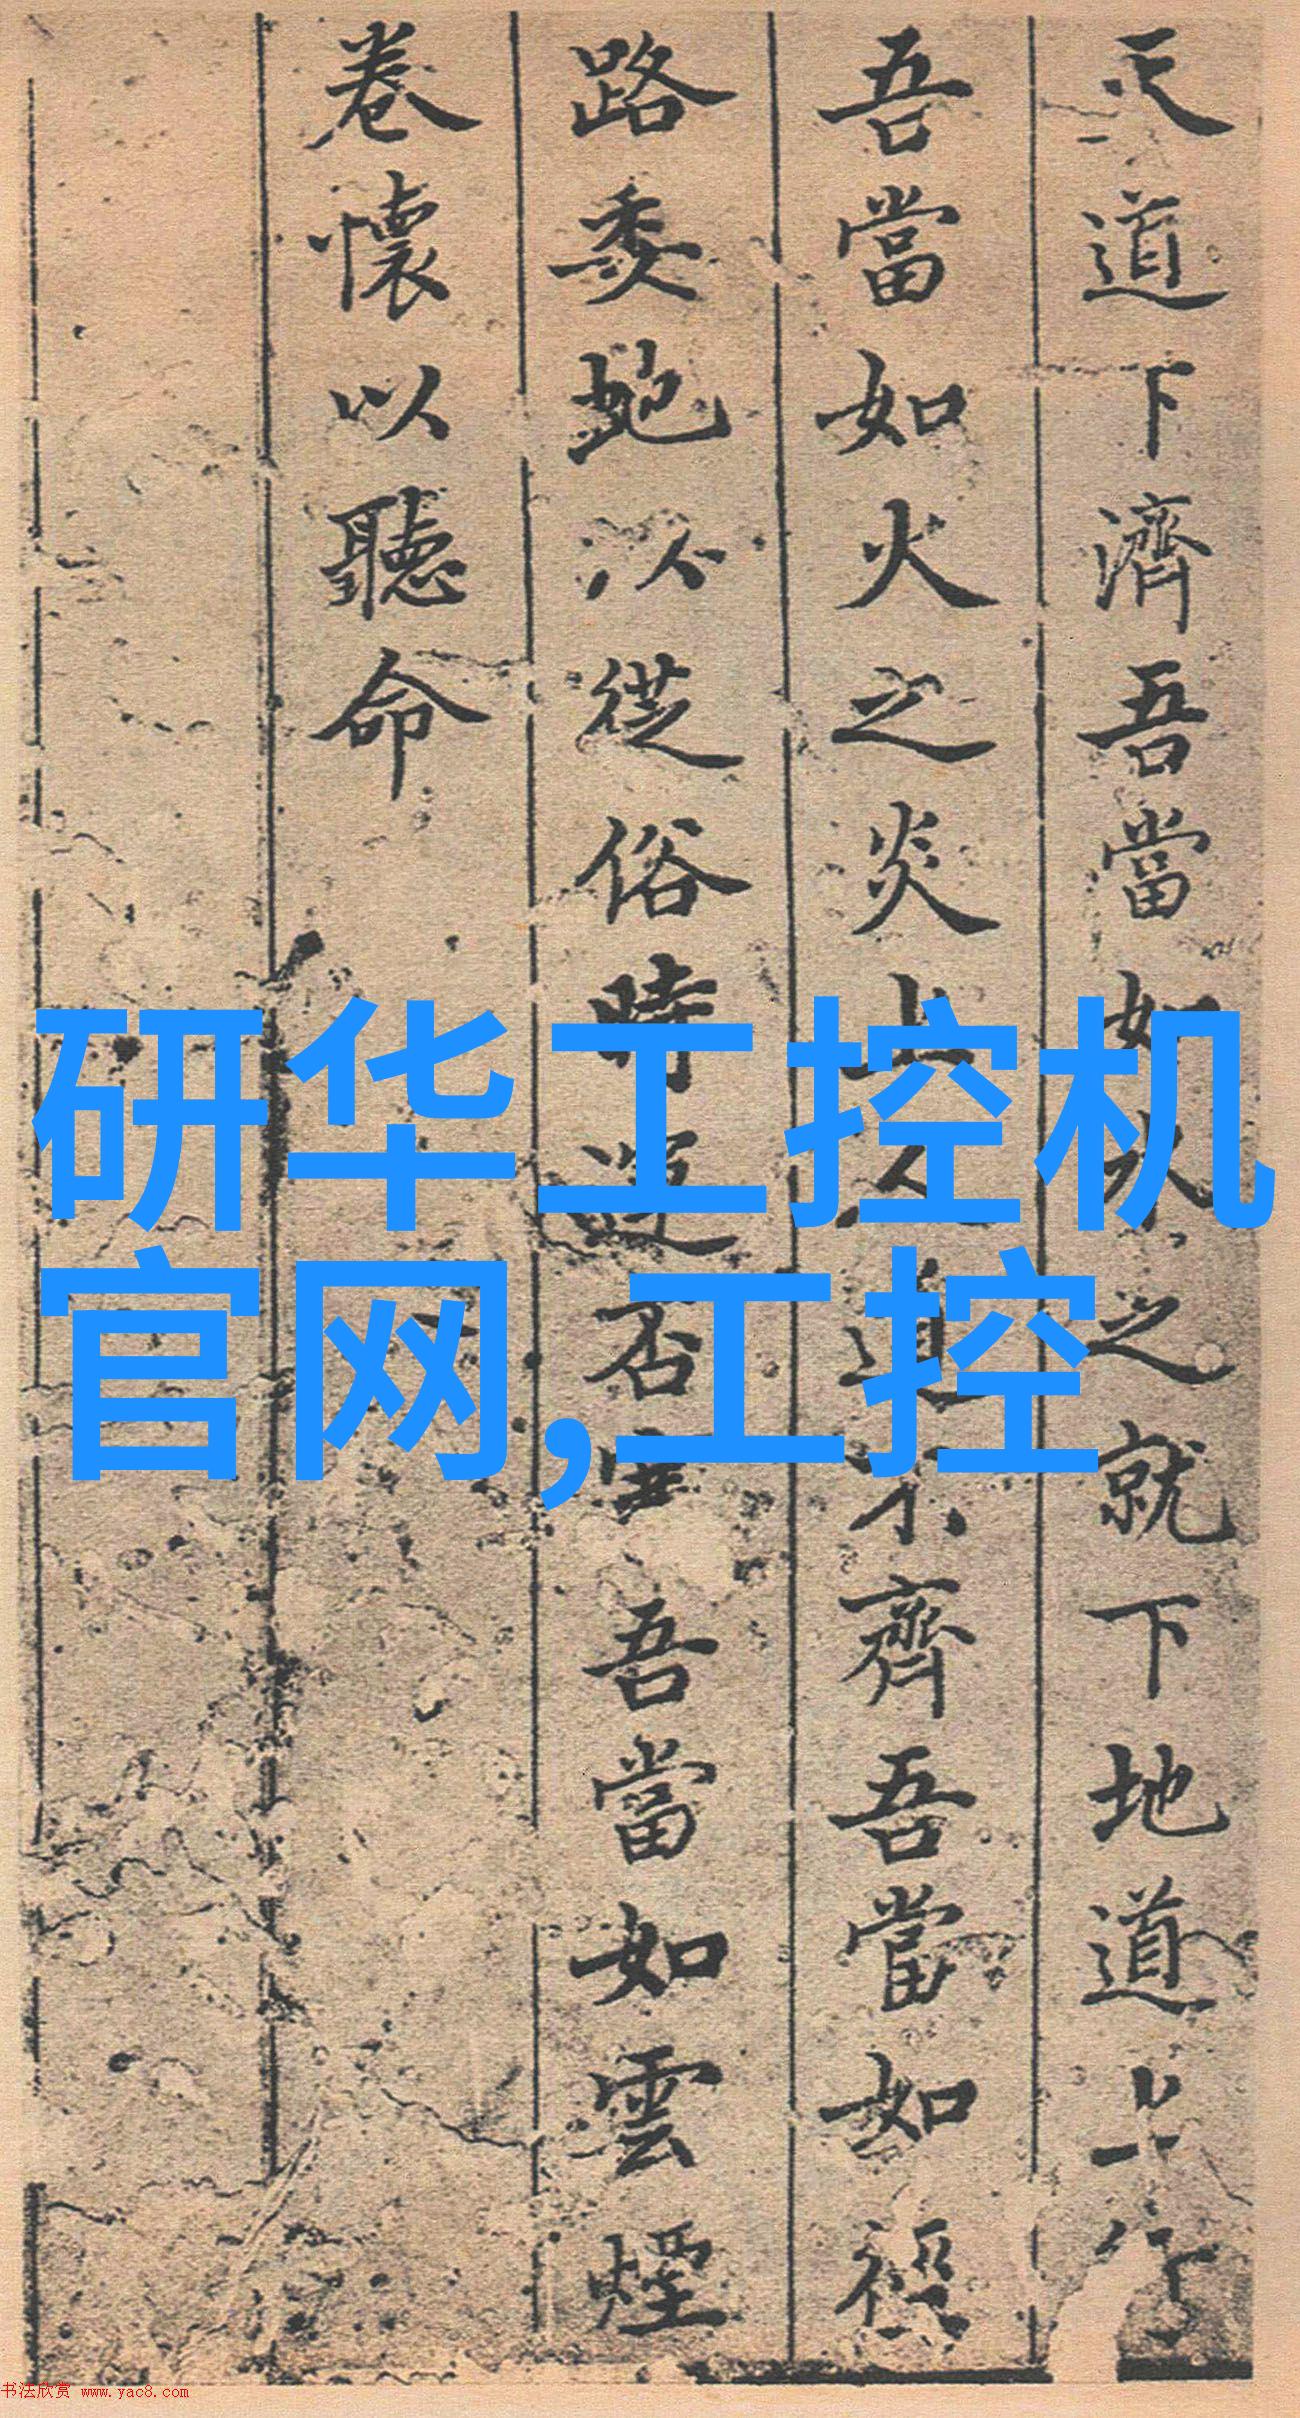 天道下濟吾當如水之就下地道上行
吾當如火之炎上人道不齊吾當如經
路委虵以從俗時道否塞吾當如雲煙
卷懷以聽命
研华工控机
官网,工控
书法欣赏 www.yac8.com